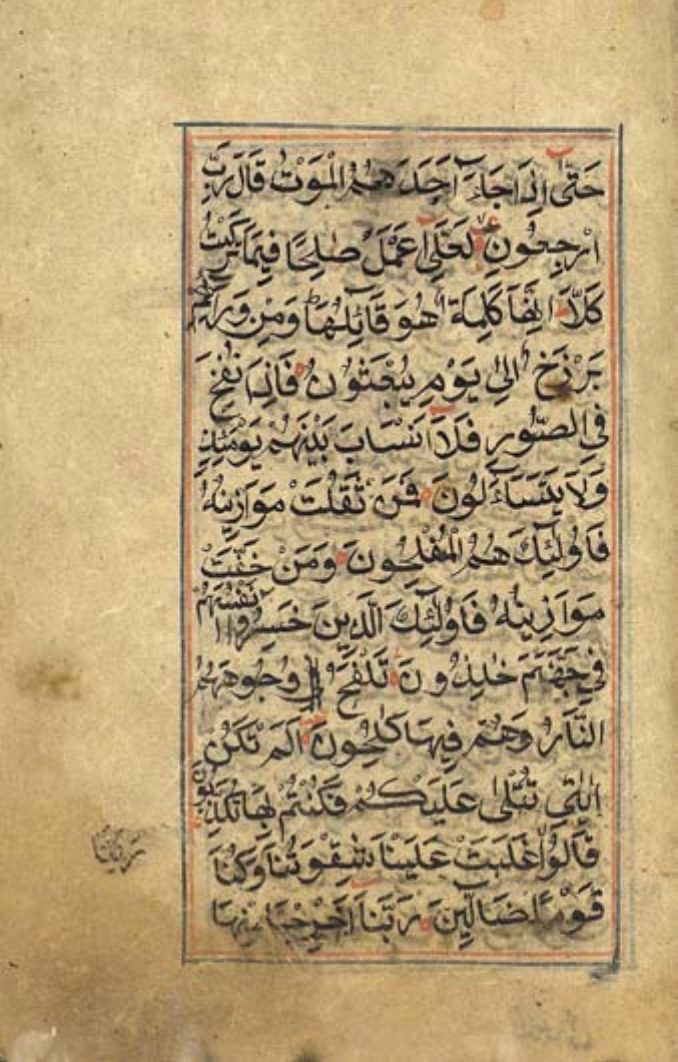 حَتّٰى اِذَا جَاۤءَ اَحَدَهُمُ الْمَوْتُ قَالَ رَبِّ
ارْجِعُونِ لَعَلِّى اَعْمَلُ صٰلِحًا فِيمَا تَرَكْتُ
كَلَّا اِنَّهَا كَلِمَةٌ هُوَ قَاۤئِلُهَا وَمِنْ وَرَاۤئِهِمْ
بَرْزَخٌ اِلٰى يَوْمِ يُبْعَثُونَ فَاِذَا نُفِخَ
فِى الصُّورِ فَلَاۤ اَنْسَابَ بَيْنَهُمْ يَوْمَئِذٍ
وَلَا يَتَسَاۤءَلُونَ فَمَنْ ثَقُلَتْ مَوَازِينُهُ
فَاُولٰئِكَ هُمُ الْمُفْلِحُونَ وَمَنْ خَفَّتْ
مَوَازِينُهُ فَاُولٰئِكَ الَّذِينَ خَسِرُوا اَنْفُسَهُمْ
فِى جَهَنَّمَ خٰلِدُونَ تَلْفَحُ وُجُوهَهُمُ
النَّارُ وَهُمْ فِيهَا كٰلِحُونَ اَلَمْ تَكُنْ
اٰيٰتِى تُتْلٰى عَلَيْكُمْ فَكُنْتُمْ بِهَا تُكَذِّبُونَ
قَالُوا غَلَبَتْ عَلَيْنَا شِقْوَتُنَا وَكُنَّا
قَوْمًا ضَاۤلِّينَ رَبَّنَا اَخْرِجْنَا مِنْهَا